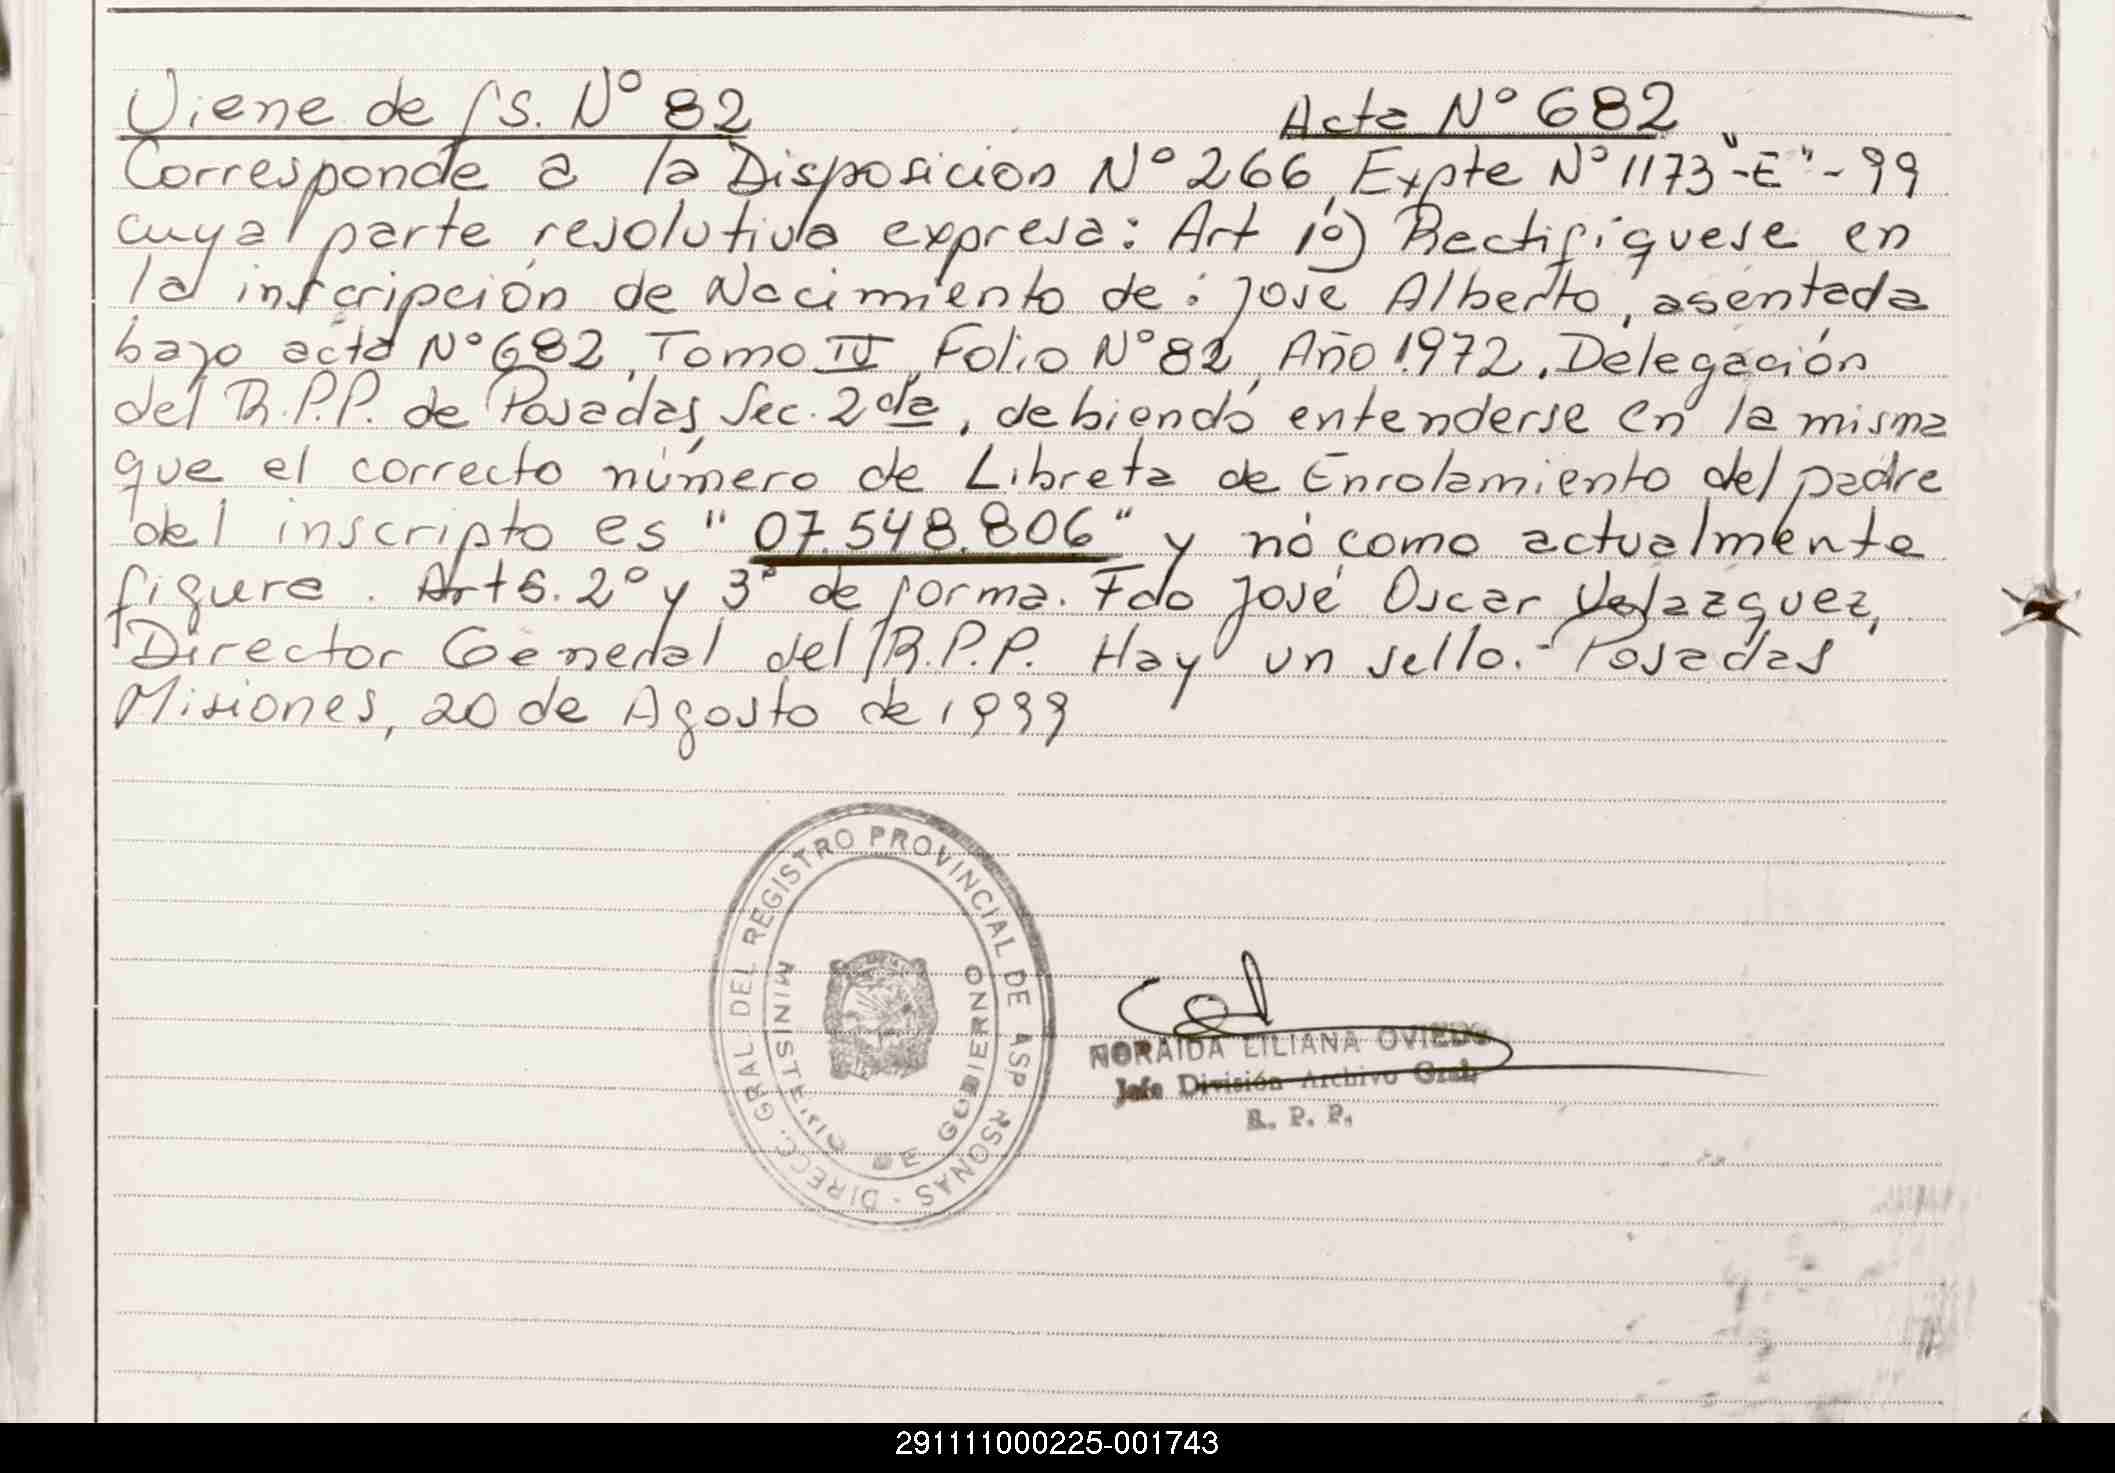 Viene de fs. Nº 82 Acta Nº 682
Corresponde a la Disposicion Nº 266, Expte Nº 1173 "-E"- 99
cuya parte resolutiva expresa: Art 1º) Rectifíquese en
la inscripción de Nacimiento de: José Alberto, asentada
bajo acta Nº 682, Tomo IV, Folio Nº 82, Año 1.972. Delegación
del R.P.P. de Posadas, Sec. 2da, debiendo entenderse en la misma
que el correcto número de Libreta de Enrolamiento del padre
del inscripto es "07.548.806" y nó como actualmente
figura. Arts. 2º y 3º de forma. Fdo José Oscar Velazquez,
Director General del R.P.P. Hay un sello.- Posadas
Misiones, 20 de Agosto de 1999
DIRECC. GRAL DEL REGISTRO PROVINCIAL DE
MINISTERIO DE GOBIERNO
NORAIDA LILIANA OVIEDO
Jefe División Archivo Gral.
R. P. P.
291111000225-001743